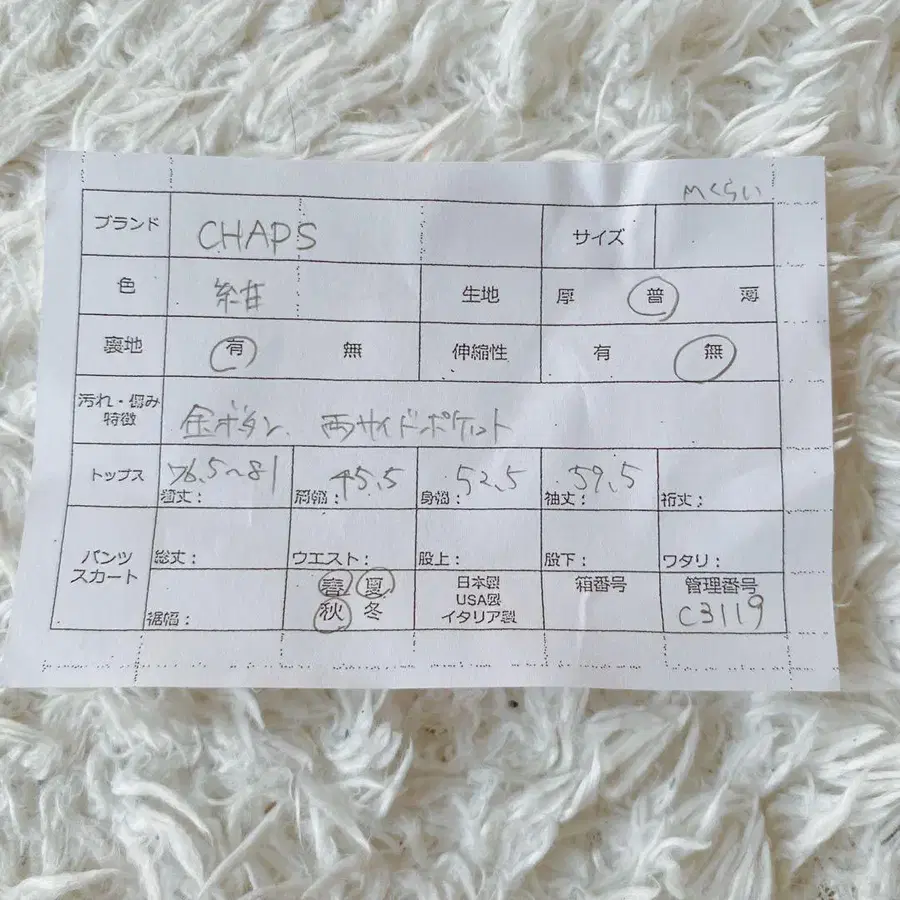 Mくらい
ブランド CHAPS サイズ
色 紺 生地 厚 普 薄
裏地 有 無 伸縮性 有 無
汚れ・傷み
特徴 金ボタン、両サイドポケット
トップス 76.5~81 45.5 52.5 59.5
着丈: 肩幅: 身幅: 袖丈: 裄丈:
パンツ
スカート
総丈: ウエスト: 股上: 股下: ワタリ:
裾幅:
春 夏
秋 冬
日本製
USA製
イタリア製
箱番号
管理番号
C3119